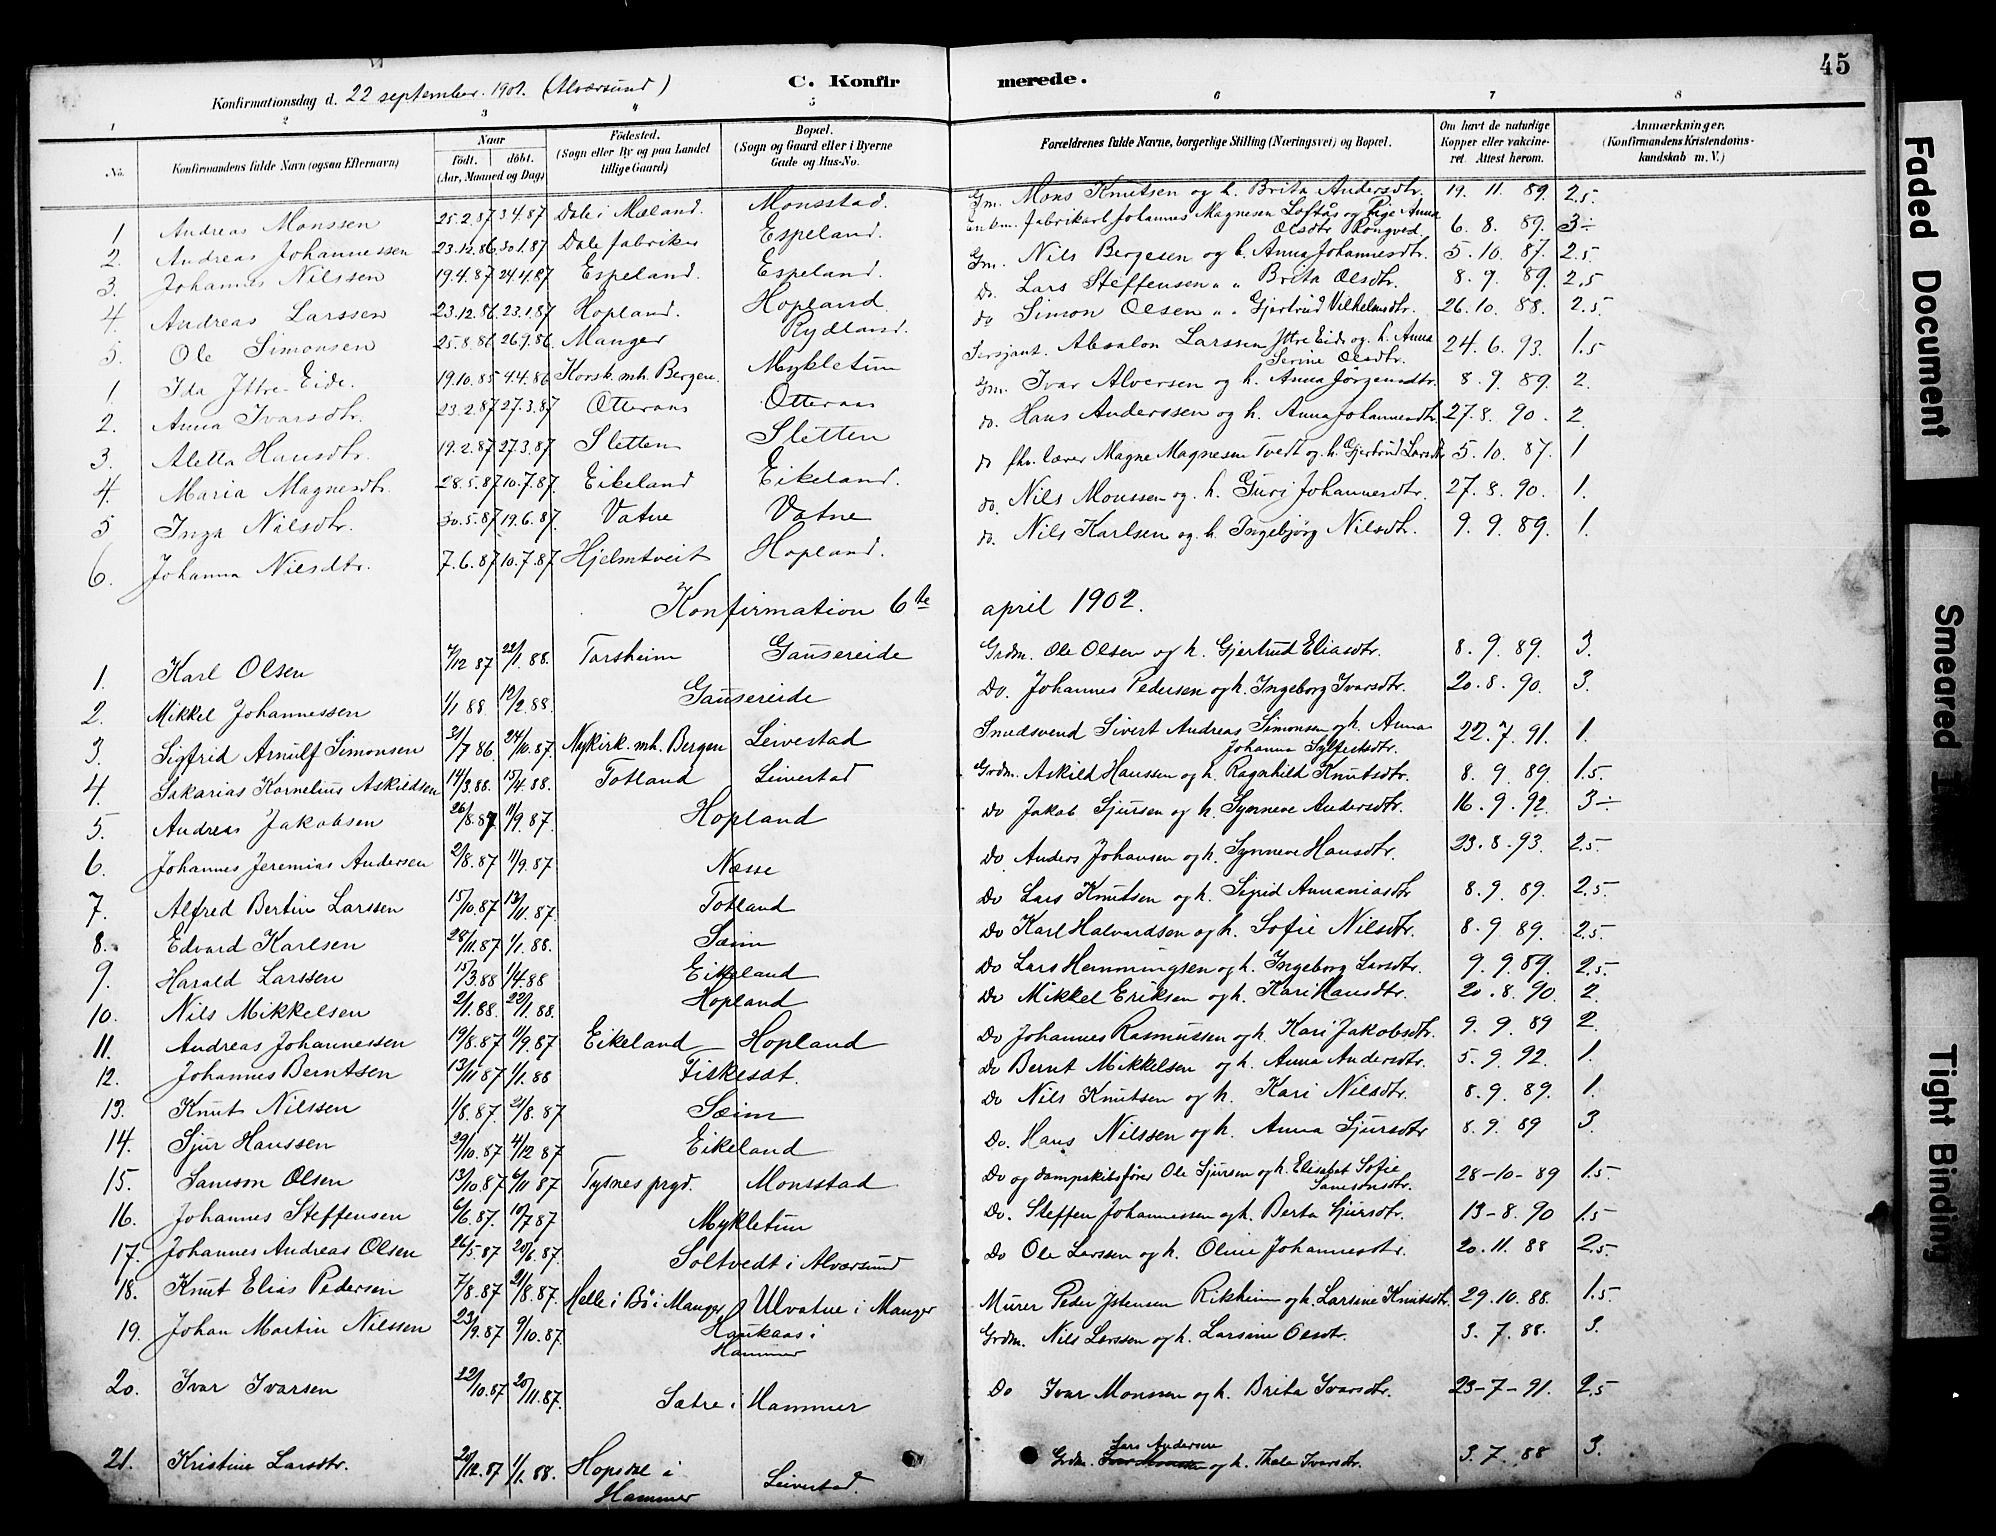 45
Konfirmationsdag d. 22 september. 1901. (Alversund) C. Konfirmerede.
1 2 3 4 5 6 7 8
No. Konfirmandens fulde Navn (ogsaa Efternavn) Naar födt. döbt. (Aar, Maaned og Dag) Födested. (Sogn eller By og paa Landet tillige Gaard) Bopæl. (Sogn og Gaard eller i Byerne Gade og Hus-No. Forældrenes fulde Navne, borgerlige Stilling (Næringsvei) og Bopæl. Om havt de naturlige Kopper eller vakcineret. Attest herom. Anmærkninger. (Konfirmandens Kristendomskundskab m. V.)
1 Andreas Monssen 25.2.87 3.4.87 Dale i Mæland. Monsstad. Gm. Mons Knutsen og h. Brita Andersdtr. 19. 11. 89. 2.5
2. Andreas Johannessen 23.12.86 30.1.87 Dale fabriker Espeland. Fabrikarb Johannes Magnesen Loftås og Pige Anna Olsdtr Rongved 6. 8. 89. 3÷
3. Johannes Nilssen 19.4.87 24.4.87 Espeland. Espeland. Gm. Nils Bergesen og h. Anna Johannesdtr. 5. 10. 87. 2.5.
4. Andreas Larssen 23.12.86 23.1.87 Hopland. Hopland Do. Lars Steffensen " " Brita Olsdtr. 8. 9. 89. 2.5
5. Ole Simonsen 25.8.86 26.9.86 Manger Rydland. do Simon Olsen " " Gjertrud Vilhelmsdtr. 26. 10. 88. 2.5.
1 Ida Ittre-Eide. 19.10.85 4.4.86 Korsk. mh. Bergen. Mykletun Sersjant. Absalon Larssen Ittre Eide og h. Anna Serine Olsdtr. 24. 6. 93. 1.5
2. Anna Ivarsdtr. 23.2.87 27.3.87 Otteraas Otteraas Gm. Ivar Alversen og h. Anna Jörgensdtr. 8. 9. 89. 2.
3. Aletta Hansdtr. 19.2.87 27.3.87 Sletten Sletten do. Hans Anderssen og h. Anna Johannesdtr. 27. 8. 90. 2
4. Maria Magnesdtr. 28.5.87 10.7.87. Eikeland Eikeland. do fhv. lærer Magne Magnesen Tvedt og h. Gjertrud Larsdtr 5. 10. 87. 1
5 Inga Nilsdtr. 30.5.87 19.6.87 Vatne Vatne do. Nils Monssen og. h. Guri Johannesdtr. 27. 8. 90. 1.
6. Johanna Nilsdtr. 7.6.87 10.7.87 Hjelmtveit Hopland. do. Nils Karlsen og. h. Ingebjörg Nilsdtr. 9. 9. 89. 1.
Konfirmation 6te april 1902.
1. Karl Olsen 7/12 87 22/1 88. Torsheim Gausereide Grdm. Ole Olsen og h. Gjertrud Eliasdtr. 8. 9. 89. 3.
2. Mikkel Johannessen 1/1 88 12/2 88. Gausereide Do. Johannes Pedersen og h. Ingeborg Ivarsdtr. 20. 8. 90. 3.
3. Sigfrid Arnulf Simonsen 31/7 86 24/10 87. Nykirk. mh. Bergen Leivestad Smedsvend Sivert Andreas Simonsen og h. Anna Johanna 22. 7. 91. 1.
4. Sakarias Kornelius Askildsen 14/3 88. 15/4 88. Totland Leivestad Grdm. Askild Hanssen og h. Ragnhild Knutsdtr. 8. 9. 89. 1.5.
5. Andreas Jakobsen 26/8.87 11/9. 87. Hopland Do Jakob Sjursen og h. Synneve Andersdtr. 16. 9. 92. 3÷
6. Johannes Jeremias Andersen 2/8. 87 11/9. 87 Næsse Do Anders Johansen og h. Synneve Hansdtr. 23. 8. 93. 2.5-
7. Alfred Bertin Larssen 15/10.87 13/11. 87. Totland Do Lars Knutsen og h. Sigrid Annaniasdtr 8. 9. 89. 2.5
8. Edvard Karlsen 28/11.87 1/1. 88. Sæim Do Karl Halvardsen og h. Sofie Nilsdtr. 8. 9. 89. 2.5.
9. Harald Larssen 15/3.88 1/4.88 Eikeland Do Lars Hemmingsen og h. Ingeborg Larsdtr. 9. 9. 89. 2.5.
10. Nils Mikkelsen 2/1.88. 22/1.88. Hopland Do Mikkel Eriksen og h. Kari Hansdtr. 20. 8. 90. 2.
11. Andreas Johannessen 19/8.87. 11/9.87 Eikeland Hopland Do Johannes Rasmussen og h. Kari Jakobsdtr. 9. 9. 89 2.
12. Johannes Berntsen 13/11 87 1/1. 88 Fiskesæt. Do Bernt Mikkelsen og h. Anna Andersdtr. 5. 9. 92. 1.
13. Knut Nilssen 1/8. 87. 21/8. 87 Sæim Do Nils Knutsen og h. Kari Nilsdtr. 8. 9. 89. 1.
14. Sjur Hanssen 29/10.87 4/12 87 Eikeland Do. Hans Nilssen og h. Anna Sjursdtr 8. 9. 89 3.
15. Samson Olsen 13/10.87 6/11 87 Tysnes prgd. Monsstad Do og dampskibsförer Ole Sjursen og h. Elisabet Sofie Samsonsdtr. 28-10-89 1.5-
16. Johannes Steffensen 6/6. 87. 10/7 87 Mykletun Do. Steffen Johannessen og h. Berta Sjursdtr. 13-8. 90 1.5-
17. Johannes Andreas Olsen 26/5.87 20/6. 87. Soltvedt i Alversund Do Ole Larssen og h. Oline Johannesdtr. 20. 11. 88 2.5-
18. Knut Elias Pedersen 7/8.87 21/8. 87. Helle i Bö i Manger Ulvatne i Manger Murer Peder Istensen Rikheim og h. Larsine Knutsdtr. 29. 10. 88. 1.5
19. Johan Martin Nilssen 23/9. 87 9/10. 87. Haukaas i Hammer Grdm. Nils Larssen og h. Larsine Olsdtr. 3. 7. 88. 3.
20. Ivar Ivarsen 22/10.87 20/11.87. Sætre i Hammer Do Ivar Monssen og h. Brita Ivarsdtr. 23-7-91. 2.5
21. Kristine Larsdtr. 20/12.87 1/1. 88. Hopsdal i Hammer Leivestad. Grdm. Lars Andersen og h. Thale Ivarsdtr. 3. 7. 88 3.
Faded Document
Smeared
Tight Binding